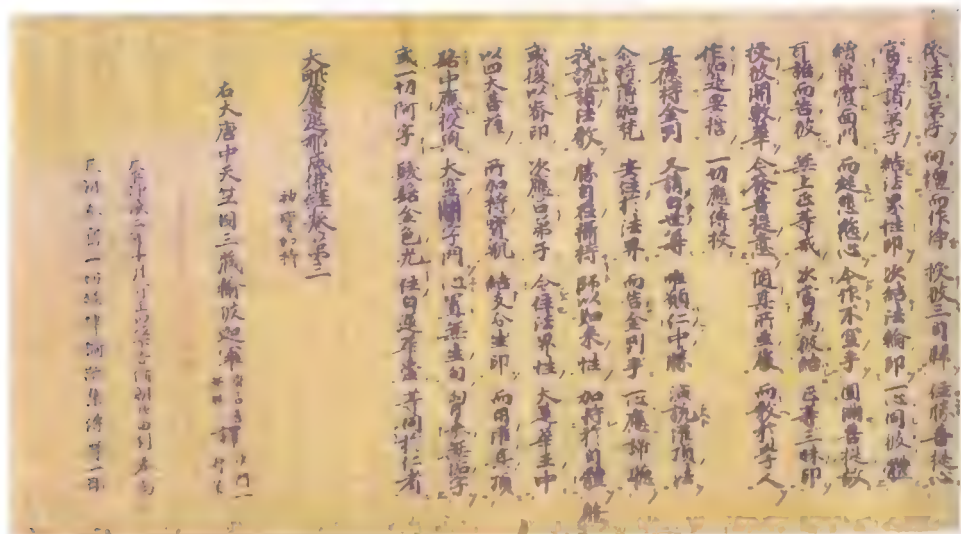 依法召弟子 向壇而作淨 授彼三自歸 住勝菩提心
當為諸弟子 結法界性印 次結法輪印 一心同彼體
繒帛覆面門 而起悲愍心 令作不空手 圓滿菩提故
耳語而告彼 無上正等戒 次當為彼結 正等三昧印
授彼開敷華 令發菩提意 隨其所至處 而教於學人
作如是要誓 一切應傳授
具德持金剛 又請白世尊 唯願仁中勝 演說灌頂法
尒時薄伽梵 安住於法界 而告金剛手 一心應諦聽
我說諸法教 勝自在攝持 師以如來性 加持於自體
或復以密印 次應召弟子 令住法界性 大蓮華王中
以四大菩薩 所加持寶瓶 結支分生印 而用灌其頂
髻中應授與 大空闇字門 心置無生句 胸表無垢字
或一切阿字 髮髻金色光 住白蓮華臺 等同於仁者
大毗盧遮那成佛經卷第二
神變加持
右大唐中天竺國三藏輸波迦羅 譯 沙門一